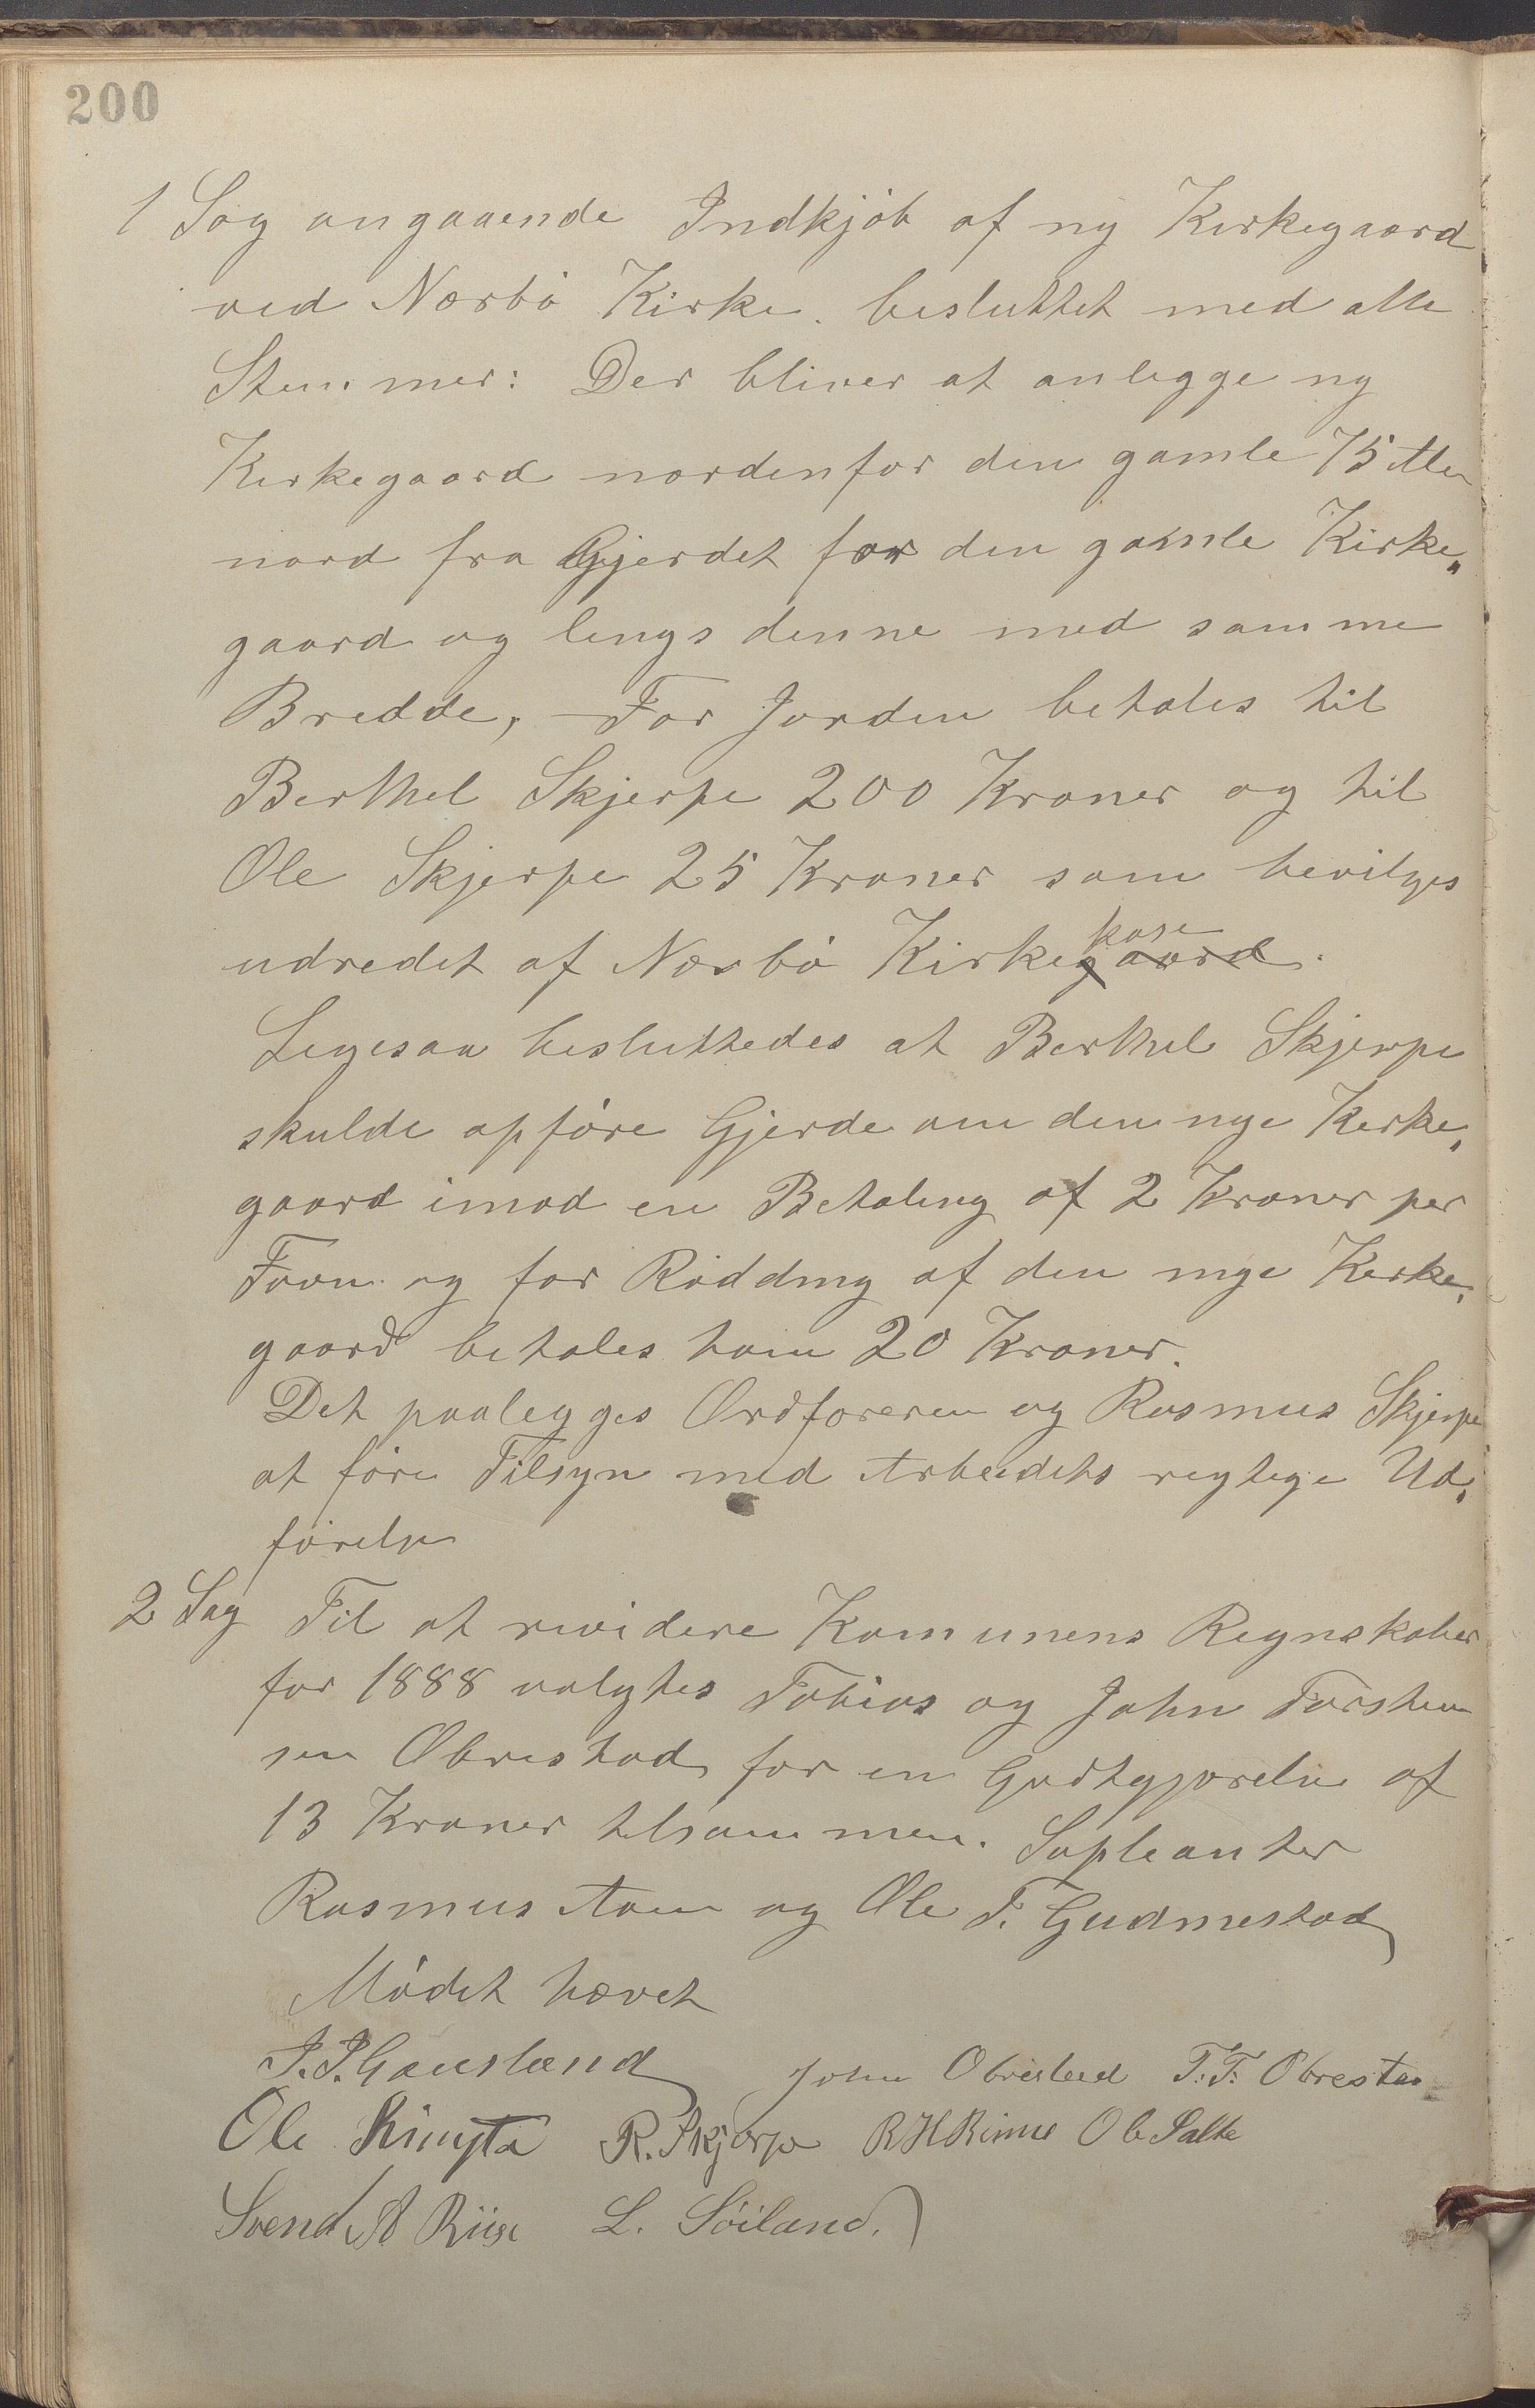 200
1 Sag angaaende Indkjøb af ny Kirkegaard
ved Nærbø Kirke. besluttet med alle
Stemmer: Der bliver at anlegge ny
Kirkegaard nordenfor den gamle 75 Alen
nord fra Gjerdet for den gamle Kirke„
gaard og lengs denne med samme
Bredde, – For Jorden betales til
Berthel Skjerpe 200 Kroner og til
Ole Skjerpe 25 Kroner som bevilges
udredet af Nærbø Kirkegaard kase.
Ligesaa besluttedes at Berthel Skjerpe
skulde opføre Gjerde om den nye Kirke„
gaard imod en Betaling af 2 Kroner per
Favn og for Rødding af den nye Kirke„
gaard betales ham 20 Kroner.
Det paalegges Ordføreren og Rasmus Skjerpe
at føre Tilsyn med Arbeidets rigtige Ud„
førelse
2 Sag Til at revidere Komunens Regnskaber
for 1888 valgtes Tobias og John Torsten
sen Obrestad for en Godtgjørelse af
13 Kroner tilsammen. Supleanter
Rasmus Aam og Ole T. Gudmestad
Mødet hævet
J. J. Gausland John Obrestad T. T. Obrestad
Ole Ringsta R. Skjerpe R H Rime Ole Salte
Svend A Riise L. Söiland.